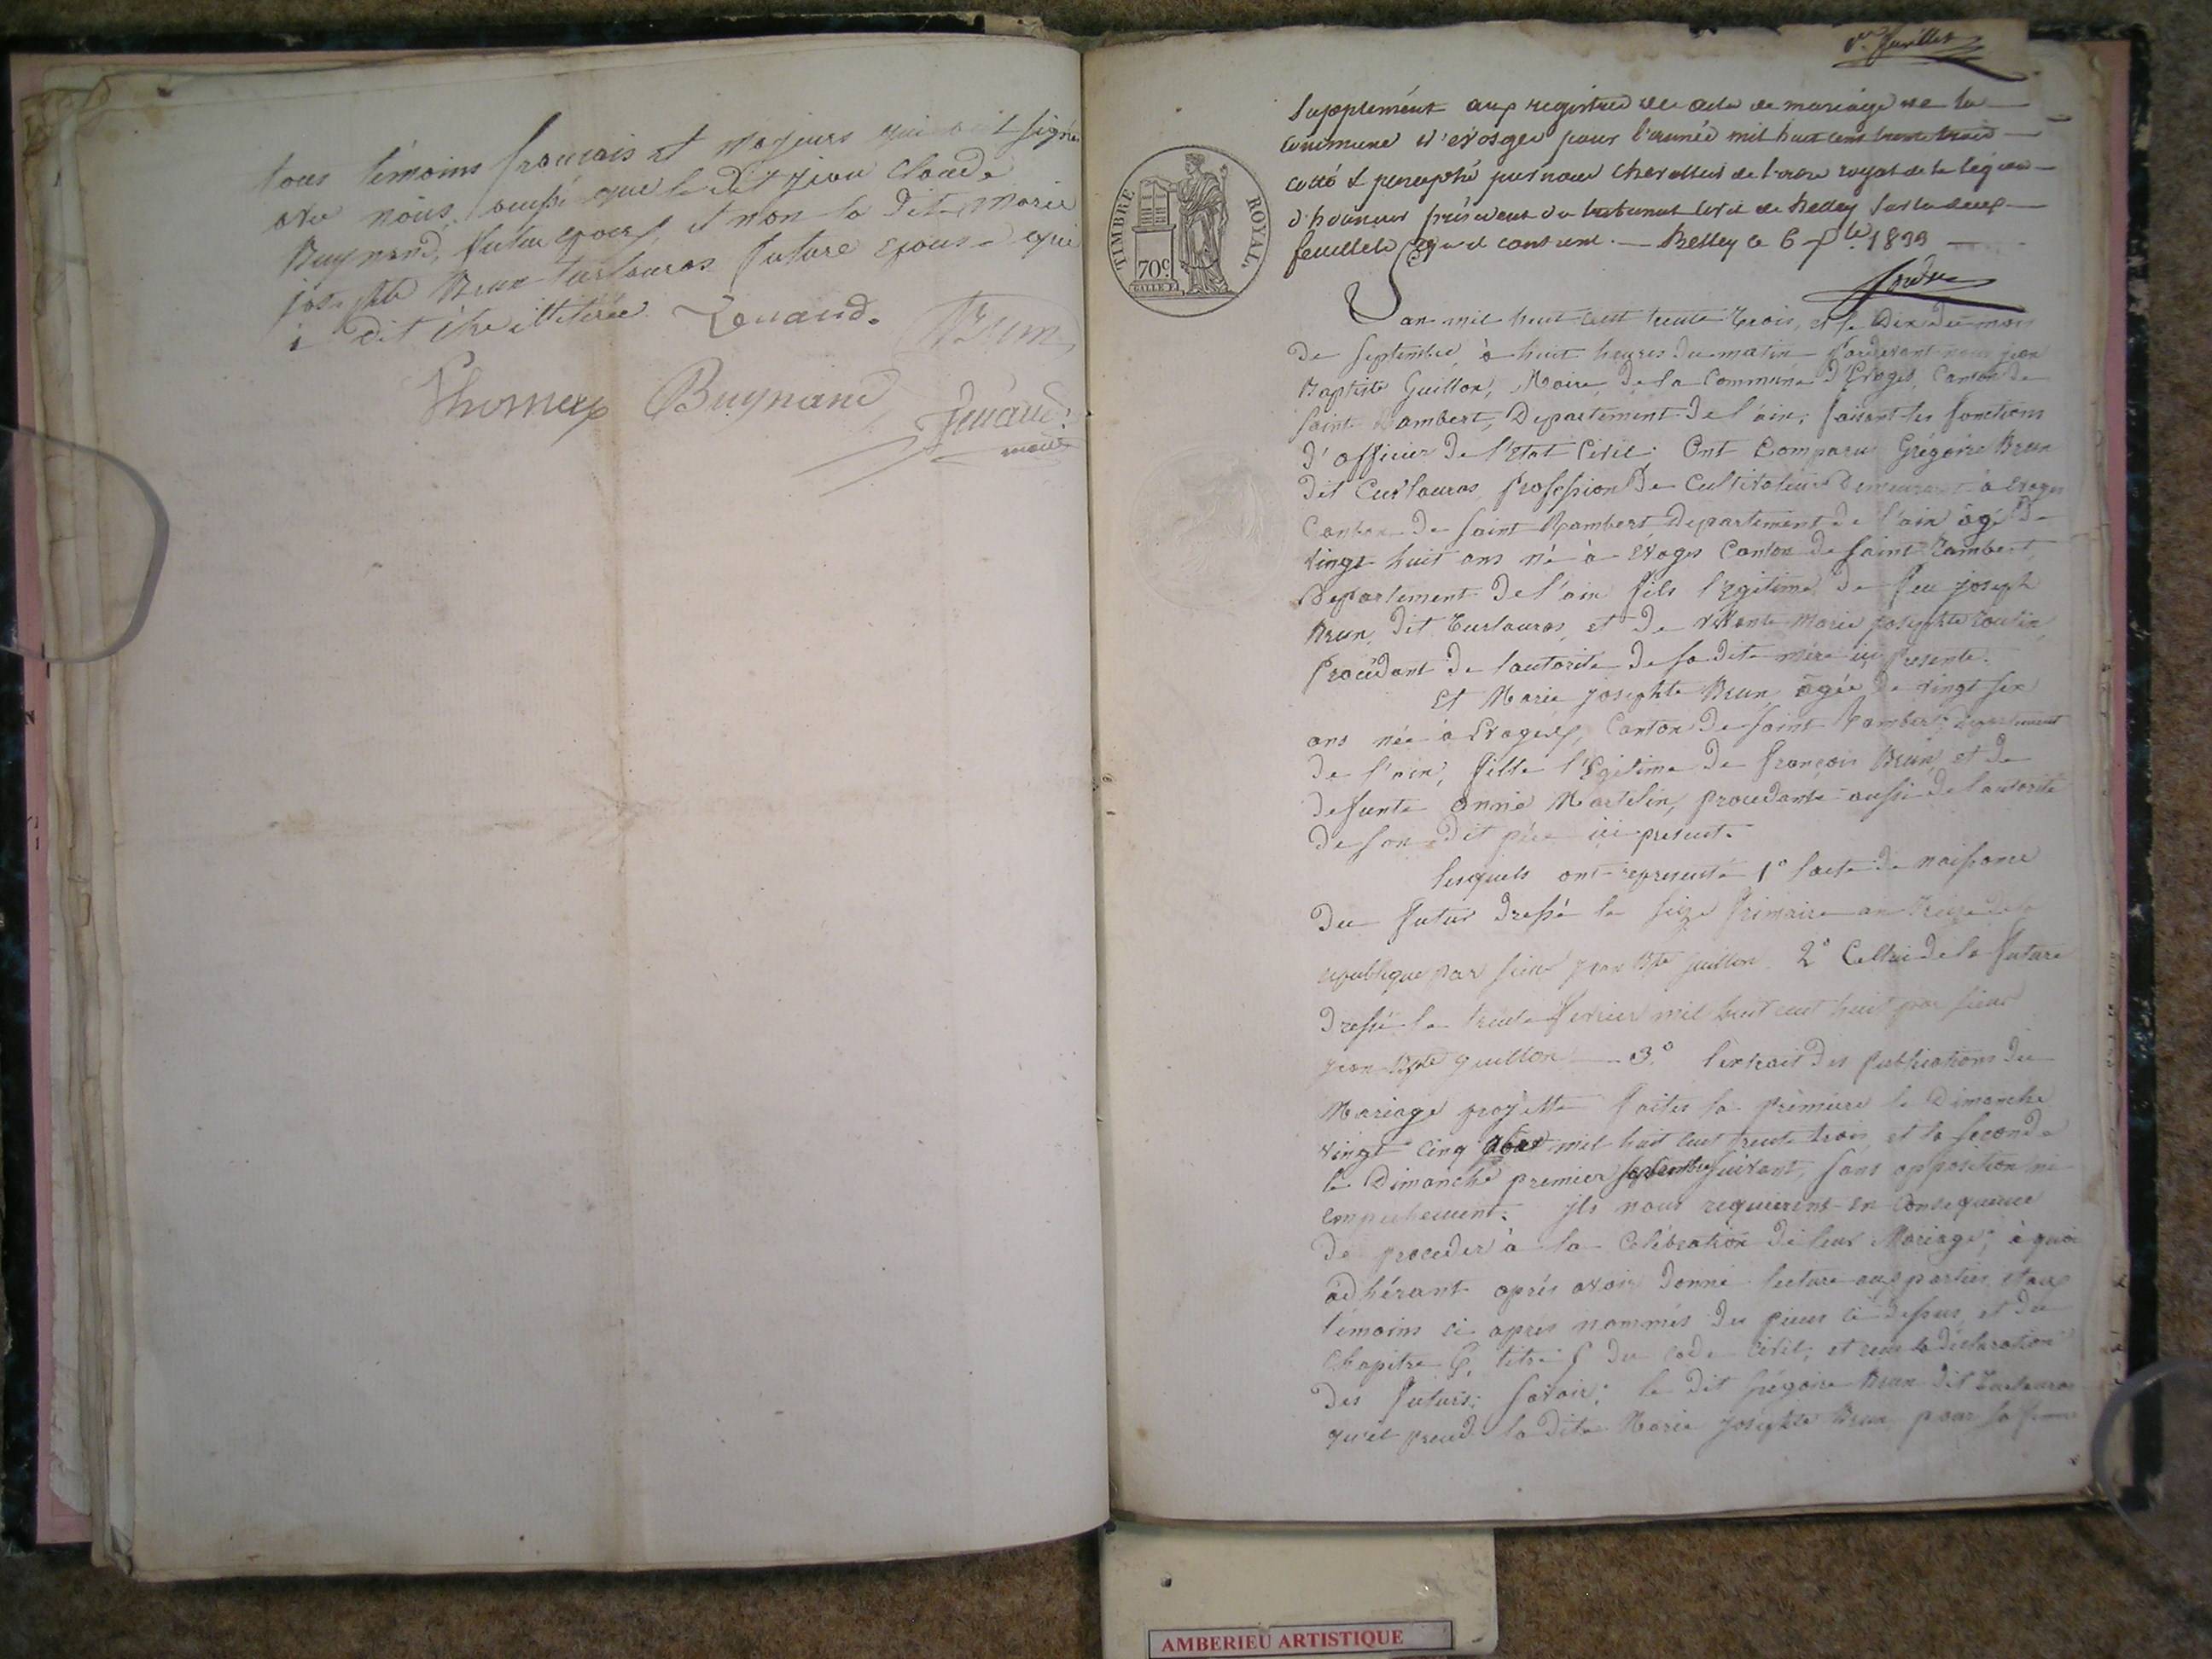 tous témoins francais et majeurs qui ont signé
avec nous, aussi que le dit jean Claude
Buynand, futur epoux, et non la dite Marie
josephte Brun turlauros future epouse qui
a dit être illitérée. Renaud.
Brun
Thomeux Buynand Renaud.
maire
1er feuillet
Supplément aux registres des actes de mariage de la
commune d'evosges pour l'année mil huit cent trente trois
cotté & paraphé par nous chevallier de l'ordre royal de la légion
d'honneur président du tribunal civil de belley sur les deux
feuillets qu'il contient. Belley le 6 7bre 1833
TIMBRE ROYAL
70c
L'an mil huit cent trente trois, et le Dix du mois
De Septembre, à huit heures du matin Pardevant nous jean
Baptiste Guillon, Maire de la Commune d'Evoges, Canton de
Saint Rambert, Departement de l'ain, faisant les fonctions
d'officier De l'Etat Civil; Ont Comparu Grégoire Brun
dit Turlauros, profession De Cultivateur Demeurant à Evoges
Canton De Saint Rambert Departement De l'ain âgé De
vingt huit ans né à Evoges Canton De Saint Rambert
Departement De l'ain fils légitime De feu joseph
Brun, Dit Turlauros, et De vivante Marie josephte
Procedant De l'autorité De sa dite mère ici presente.
Et Marie josephte Brun, âgée De vingt six
ans née à Evoges, Canton De Saint Rambert, departement
De l'ain, fille légitime De françois Brun et De
Defunte anne Martelin, procedante aussi De l'autorité
De son Dit père ici present.
lesquels ont representé 1° l'acte De naissance
Du futur Dressé le seize frimaire an treize De la
republique par sieur jean Bte guillon 2° Cellui De la future
Dressé le trente fevrier mil huit cent huit par sieur
jean Bpte guillon 3° l'extrait Des publications Du
Mariage projetté faites la premiere le Dimanche
vingt cinq aout mil huit cent trente trois, et la seconde
le Dimanche premier septembre suivant, sans opposition ni
empechement. ils nous requierent en Consequence
De proceder à la Célébration De leur Mariage; à quoi
adhérant après avoir Donné lecture aux parties, et aux
témoins ci après nommés Des pieces ci Dessus, et Du
Chapitre 6, titre 5 Du code civil; et reçu la Declaration
Des futurs; Savoir: le Dit Grégoire Brun Dit Turlauros
qu'il prend la Dite Marie josephte Brun pour sa femme
AMBERIEU ARTISTIQUE